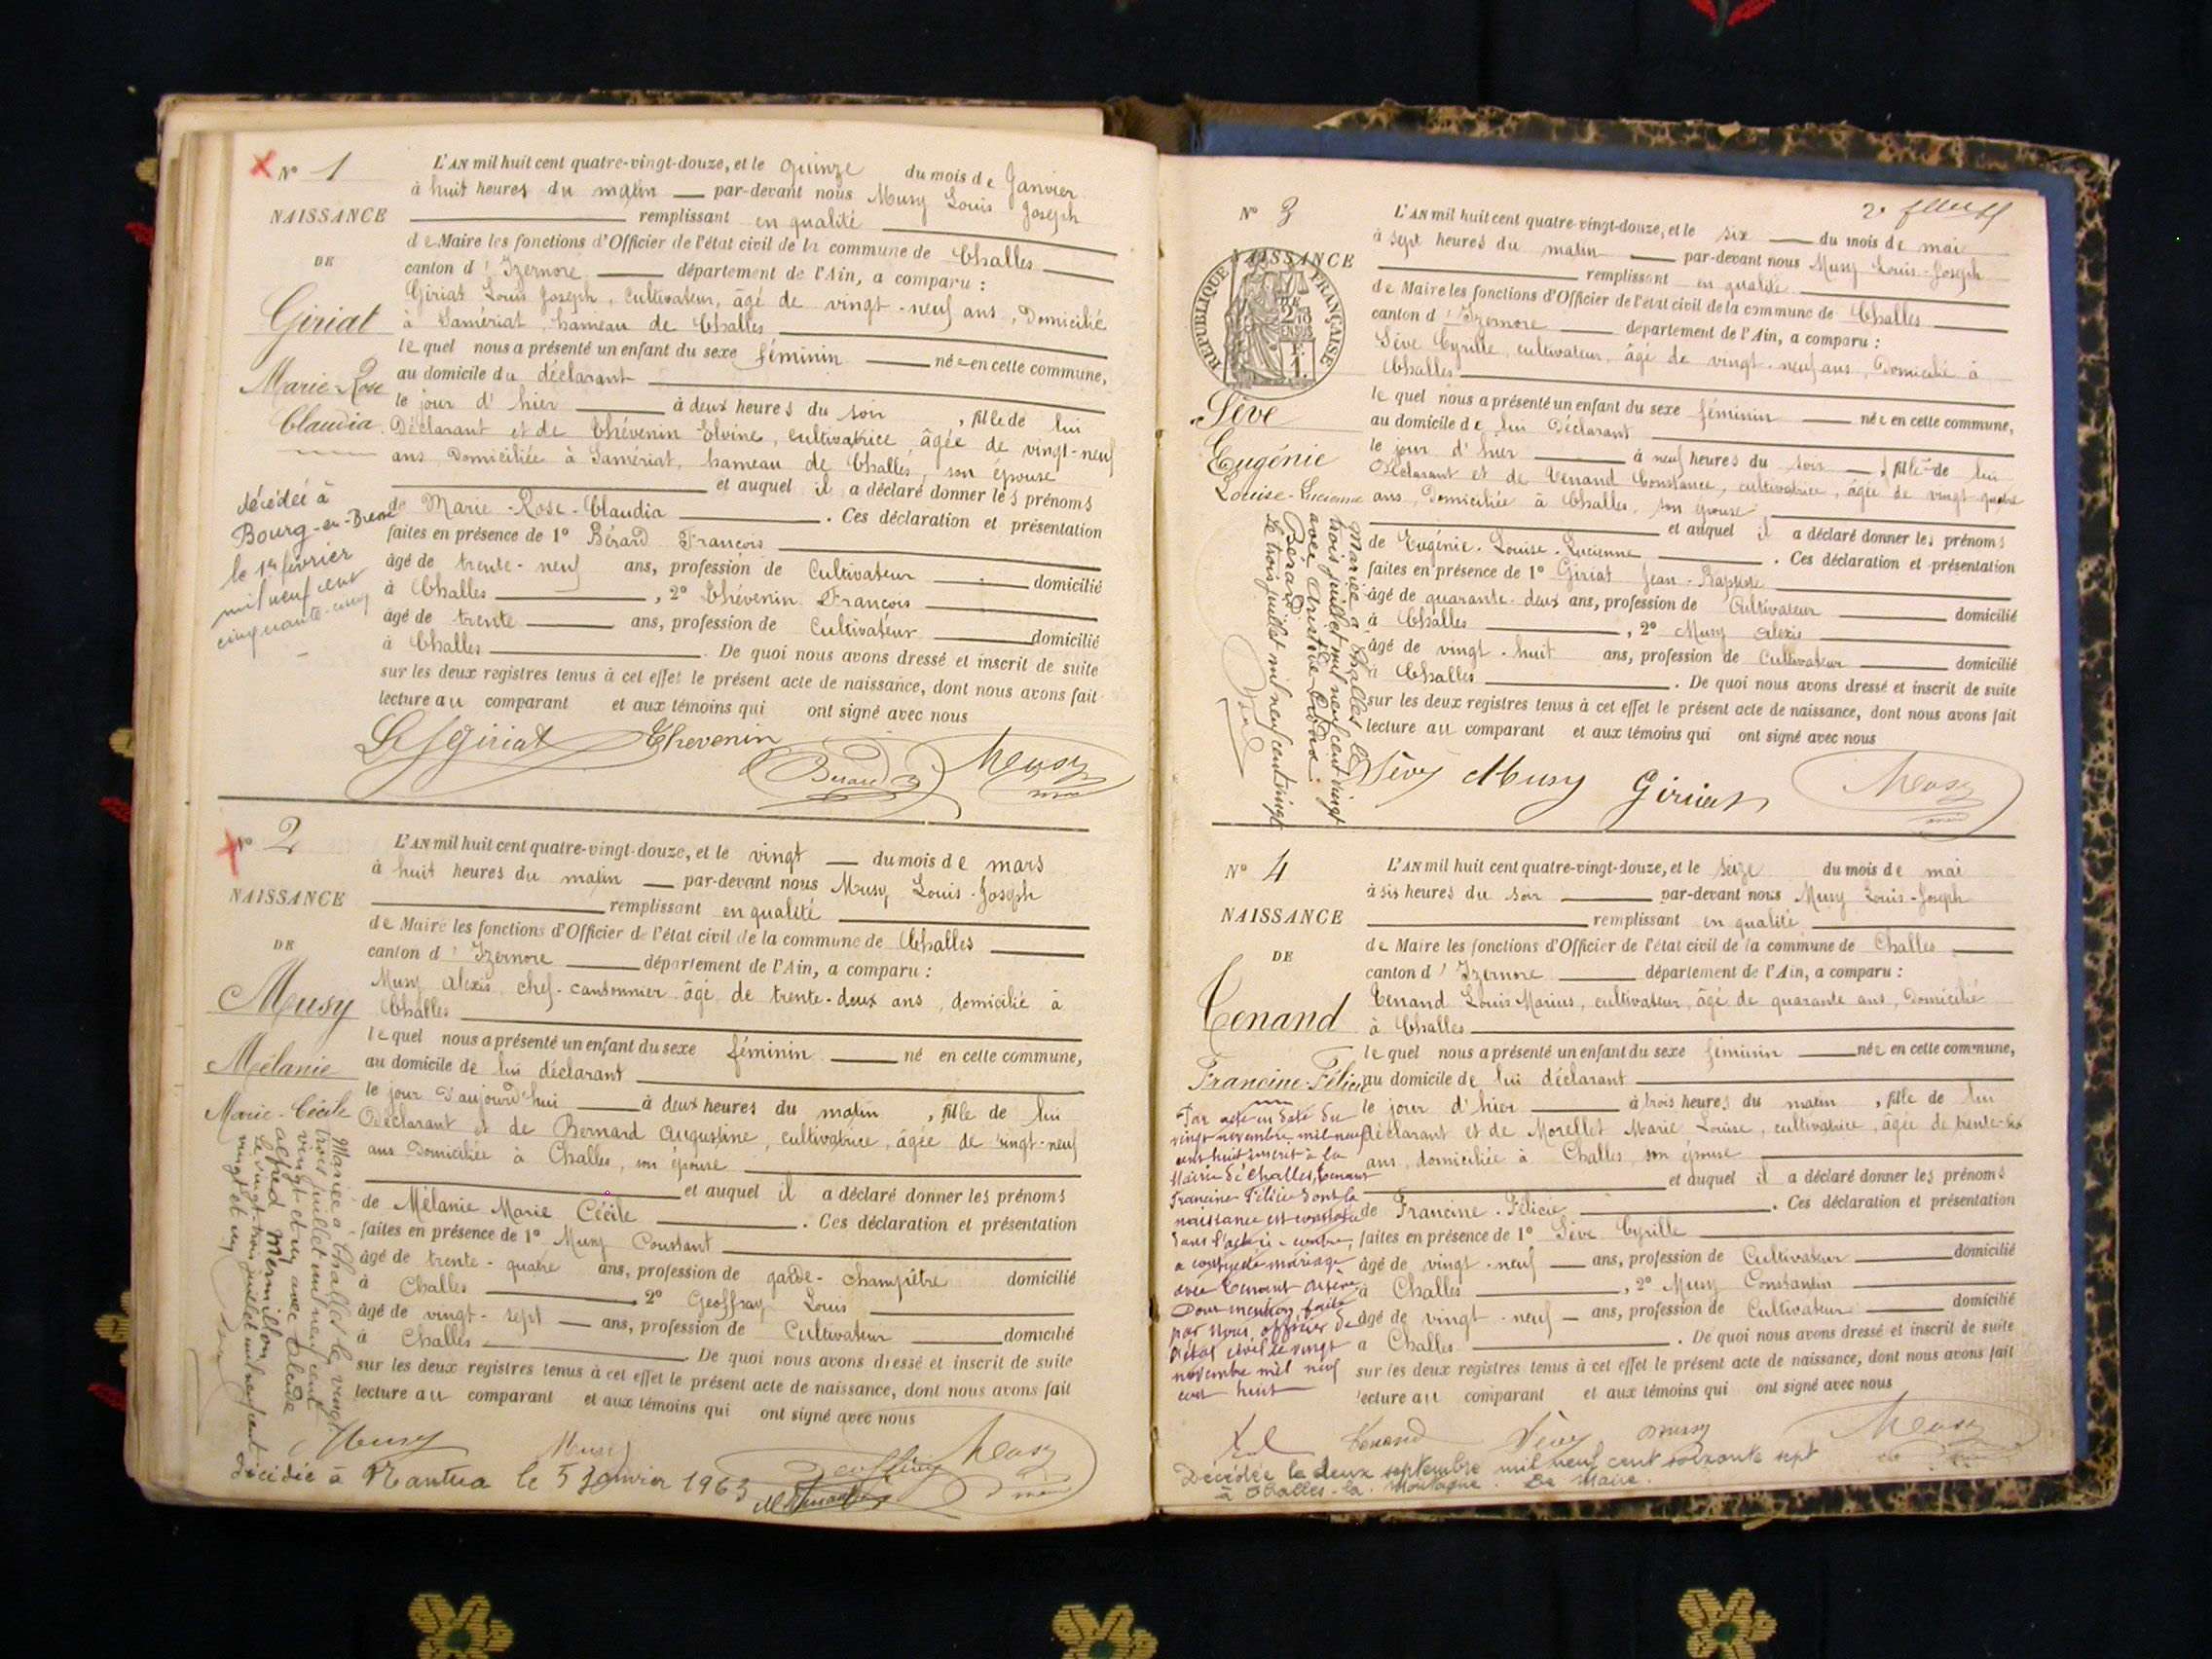 Nº 1
NAISSANCE
DE
Giriat
Marie-Rose
Claudia
décédée à
Bourg-en-Bresse
le 1er février
mil neuf cent
cinquante-cinq
L'AN mil huit cent quatre-vingt-douze, et le quinze du mois de Janvier
à huit heures du matin — par-devant nous Musy Louis Joseph
remplissant en qualité
de Maire les fonctions d'Officier de l'état civil de la commune de Challes
canton d'Izernore — département de l'Ain, a comparu :
Giriat Louis Joseph, cultivateur, âgé de vingt-neuf ans, Domicilié
à Samériat, hameau de Challes
lequel nous a présenté un enfant du sexe féminin — née en cette commune,
au domicile du déclarant
le jour d'hier — à deux heures du soir, fille de lui
Déclarant et de Chévenin Elvine, cultivatrice, âgée de vingt-neuf
ans, Domiciliée à Samériat, hameau de Challes, son épouse
et auquel il a déclaré donner les prénoms
de Marie-Rose-Claudia — . Ces déclaration et présentation
faites en présence de 1º Bérard François
âgé de trente-neuf ans, profession de Cultivateur — domicilié
à Challes — , 2º Chévenin François
âgé de trente — ans, profession de Cultivateur — domicilié
à Challes — . De quoi nous avons dressé et inscrit de suite
sur les deux registres tenus à cet effet le présent acte de naissance, dont nous avons fait
lecture au comparant et aux témoins qui ont signé avec nous
Giriat Chevenin Berard Musy
Nº 2
NAISSANCE
DE
Musy
Mélanie
Marie-Cécile
Mariée à Challes le vingt
trois juillet mil neuf cent
vingt et un avec Blende
Alfred Mermillon
Le vingt-trois juillet mil neuf cent
vingt et un
L'AN mil huit cent quatre-vingt-douze, et le vingt — du mois de mars
à huit heures du matin — par-devant nous Musy Louis-Joseph
remplissant en qualité
de Maire les fonctions d'Officier de l'état civil de la commune de Challes
canton d'Izernore — département de l'Ain, a comparu :
Musy Alexis chef-cantonnier âgé de trente-deux ans, domicilié à
Challes
lequel nous a présenté un enfant du sexe féminin — né en cette commune,
au domicile de lui déclarant
le jour d'aujourd'hui — à deux heures du matin, fille de lui
Déclarant et de Bernard Augustine, cultivatrice, âgée de vingt-neuf
ans Domiciliée à Challes, son épouse
et auquel il a déclaré donner les prénoms
de Mélanie Marie Cécile — . Ces déclaration et présentation
faites en présence de 1º Musy Constant
âgé de trente-quatre ans, profession de garde-champêtre domicilié
à Challes — 2º Geoffray Louis
âgé de vingt-sept — ans, profession de Cultivateur — domicilié
à Challes — . De quoi nous avons dressé et inscrit de suite
sur les deux registres tenus à cet effet le présent acte de naissance, dont nous avons fait
lecture au comparant et aux témoins qui ont signé avec nous
Musy Musy Geoffray Musy
Décédée à Nantua le 5 Janvier 1963
2e feuillet
Nº 3
NAISSANCE
DE
REPUBLIQUE FRANÇAISE
Sève
Eugénie
Louise-Lucienne
Mariée à Challes le
trois juillet mil neuf cent vingt
avec Aristide
Bérard
Le trois juillet mil neuf cent vingt
L'AN mil huit cent quatre-vingt-douze, et le six — du mois de mai
à sept heures du matin — par-devant nous Musy Louis-Joseph
remplissant en qualité
de Maire les fonctions d'Officier de l'état civil de la commune de Challes
canton d'Izernore — département de l'Ain, a comparu :
Sève Cyrille, cultivateur, âgé de vingt-neuf ans, Domicilié à
Challes
lequel nous a présenté un enfant du sexe féminin — née en cette commune,
au domicile de lui Déclarant
le jour d'hier — à neuf heures du soir —, fille de lui
Déclarant et de Tenand Constance, cultivatrice, âgée de vingt-quatre
ans, Domiciliée à Challes, son épouse
et auquel il a déclaré donner les prénoms
de Eugénie-Louise-Lucienne — . Ces déclaration et présentation
faites en présence de 1º Giriat Jean-Baptiste
âgé de quarante-deux ans, profession de Cultivateur — domicilié
à Challes — , 2º Musy Alexis
âgé de vingt-huit ans, profession de Cultivateur — domicilié
à Challes — . De quoi nous avons dressé et inscrit de suite
sur les deux registres tenus à cet effet le présent acte de naissance, dont nous avons fait
lecture au comparant et aux témoins qui ont signé avec nous
Sève Musy Giriat Musy
Nº 4
NAISSANCE
DE
Tenand
Francine-Félicie
Par acte en date du
vingt novembre mil neuf
cent huit inscrit à la
Mairie de Challes, Tenand
Francine Félicie dont la
naissance est constatée
dans l'acte ci-contre,
a contracté mariage
avec Tenand Arsène
Dont mention faite
par nous, officier de
l'état civil le vingt
novembre mil neuf
cent huit
L'AN mil huit cent quatre-vingt-douze, et le seize du mois de mai
à six heures du soir — par-devant nous Musy Louis-Joseph
remplissant en qualité
de Maire les fonctions d'Officier de l'état civil de la commune de Challes
canton d'Izernore — département de l'Ain, a comparu :
Tenand Louis Marius, cultivateur, âgé de quarante ans, Domicilié
à Challes
lequel nous a présenté un enfant du sexe féminin — née en cette commune,
au domicile de lui déclarant
le jour d'hier — à trois heures du matin, fille de lui
déclarant et de Morellet Marie Louise, cultivatrice, âgée de trente-six
ans, domiciliée à Challes, son épouse
et auquel il a déclaré donner les prénoms
de Francine-Félicie — . Ces déclaration et présentation
faites en présence de 1º Sève Cyrille
âgé de vingt-neuf — ans, profession de Cultivateur — domicilié
à Challes — , 2º Musy Constantin
âgé de vingt-neuf — ans, profession de Cultivateur — domicilié
à Challes — . De quoi nous avons dressé et inscrit de suite
sur les deux registres tenus à cet effet le présent acte de naissance, dont nous avons fait
lecture au comparant et aux témoins qui ont signé avec nous
Tenand Sève Musy Musy
Décédée le deux septembre mil neuf cent soixante sept
à Challes-la-Montagne. Le Maire.